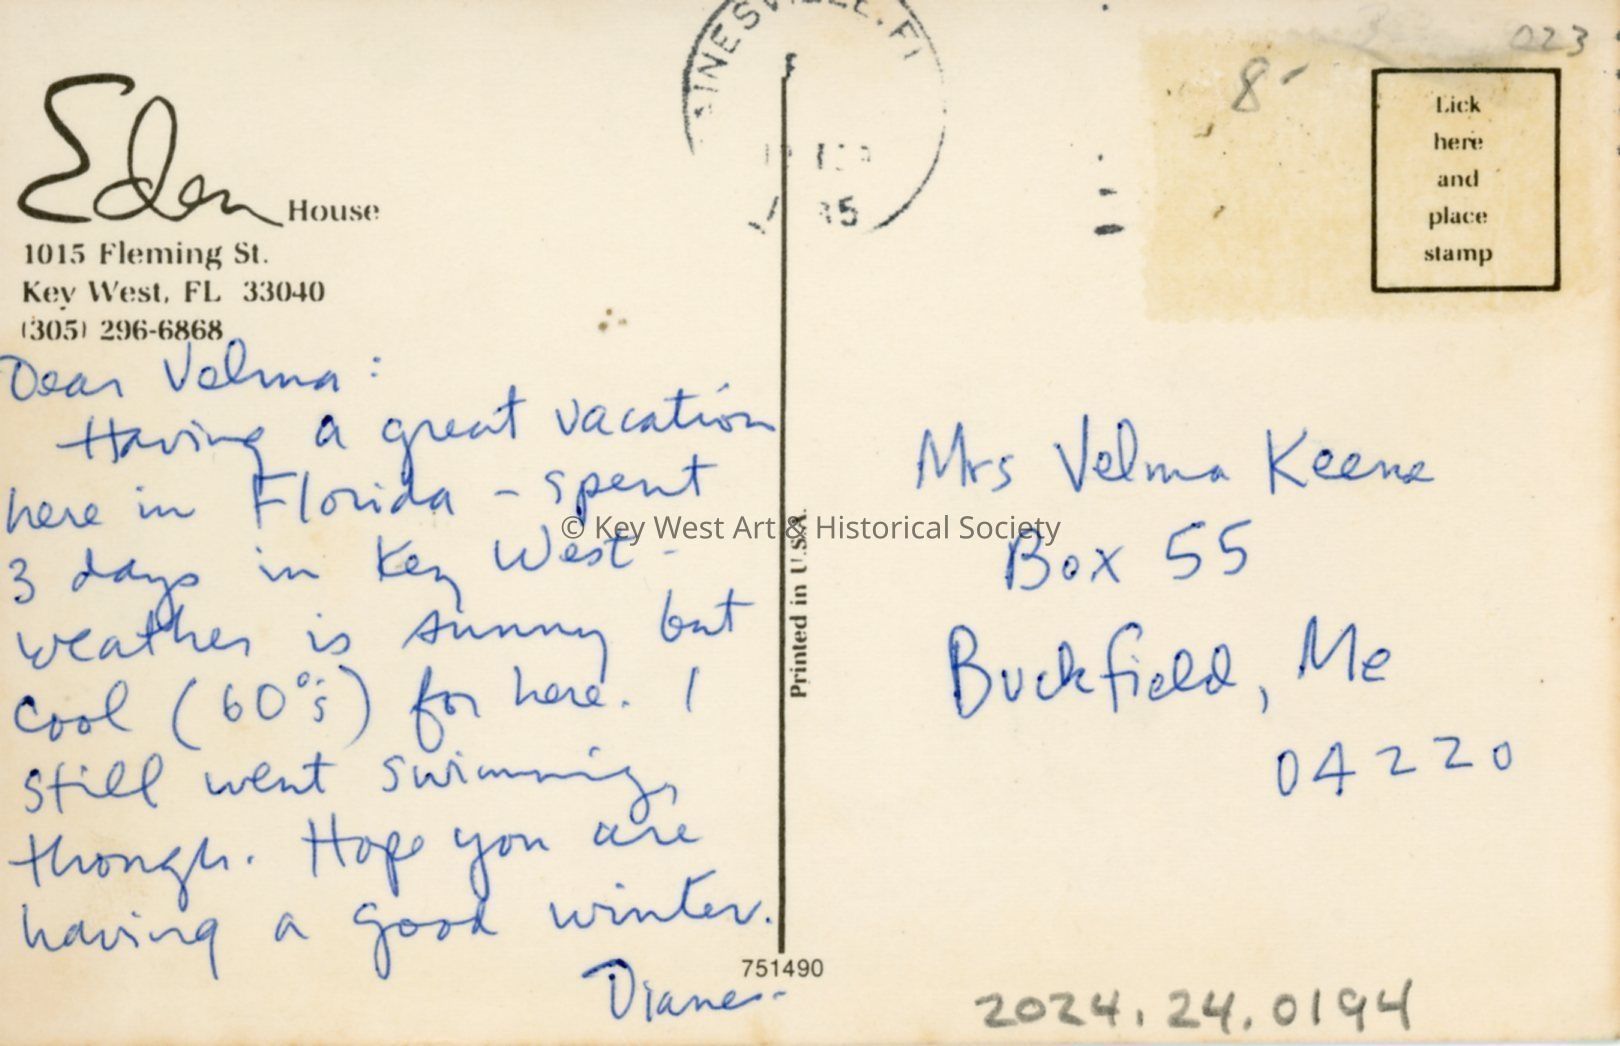 Eden House
1015 Fleming St.
Key West, FL 33040
(305) 296-6868
Dear Velma:
Having a great vacation
here in Florida - spent
3 days in Key West -
weather is sunny but
cool (60°s) for here. I
still went swimming,
though. Hope you are
having a good winter.
Diane
751490
Printed in U.S.A.
INESVILLE, FL
8-
023
Lick
here
and
place
stamp
Mrs Velma Keene
Box 55
Buckfield, Me
04220
© Key West Art & Historical Society
2024.24.0194